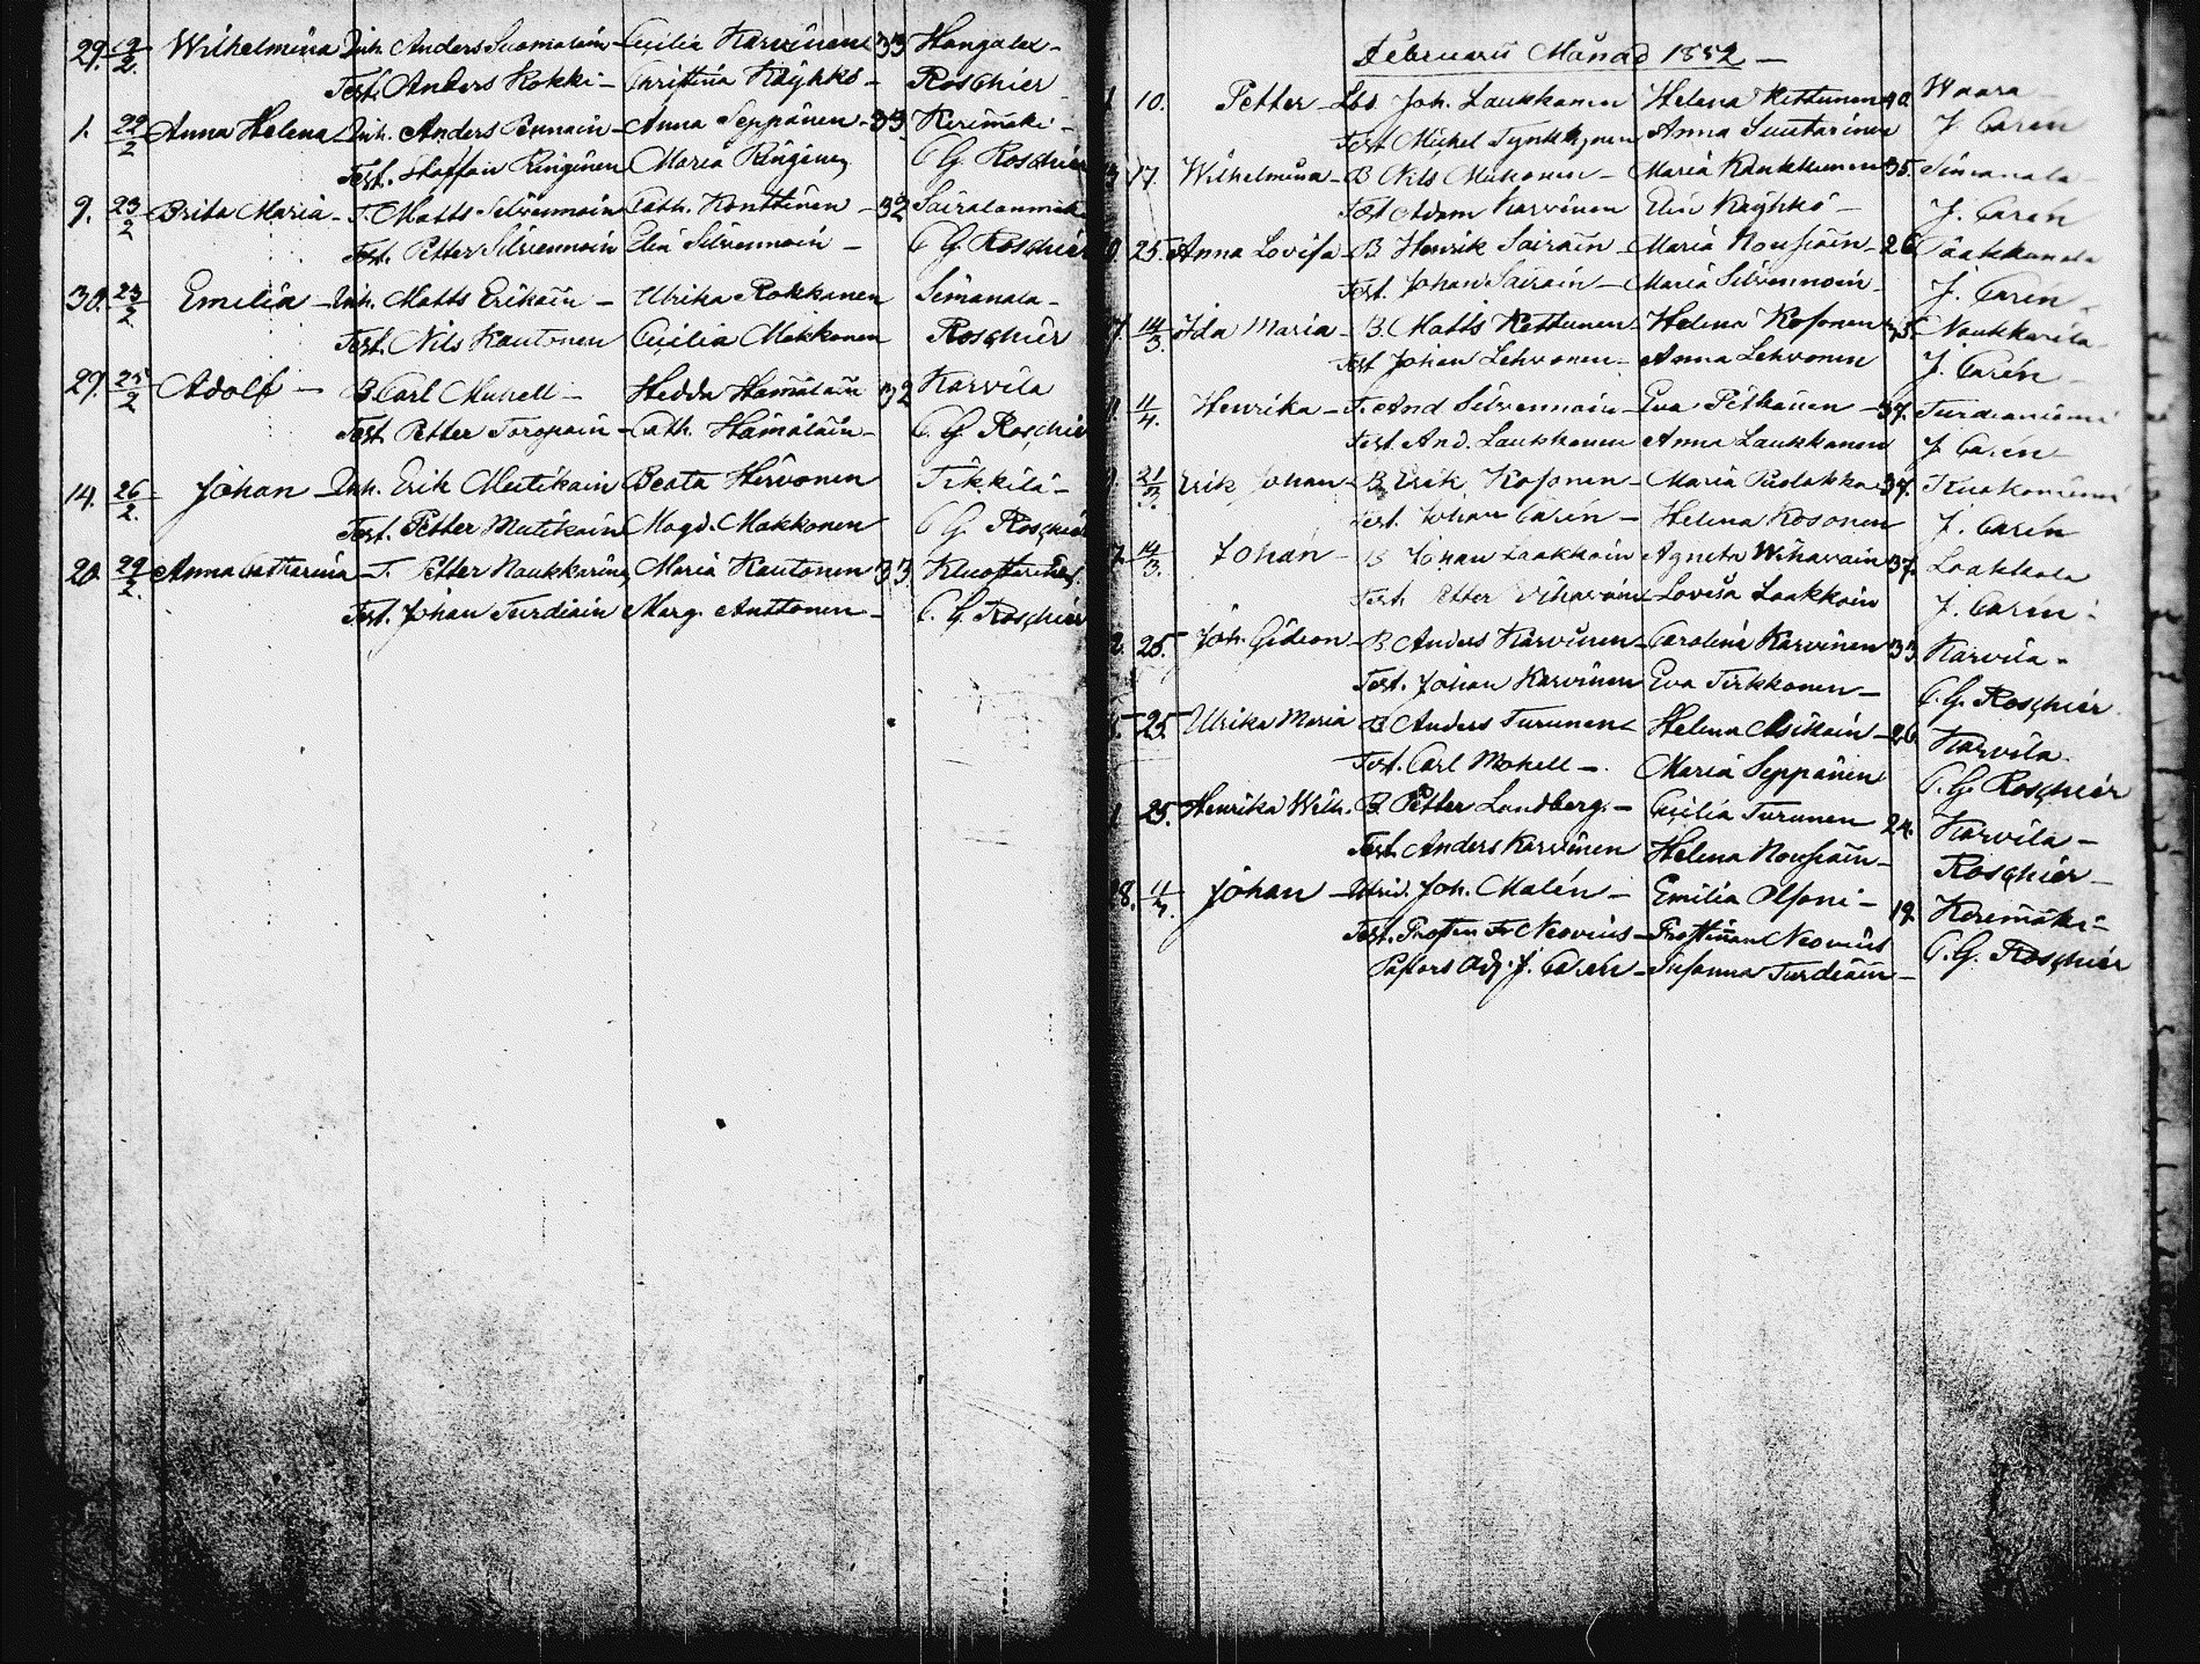 29. 19/2. Wilhelmina Inh. Anders Suomalain Cecilia Karvinen 33 Hangalax
Test. Anders Kokki Christina Käyhkö Roschier
1. 22/2 Anna Helena Inh. Anders Pennain Anna Seppänen 33 Kerimäki
Test. Staffan Ringinen Maria Ringinen C G Roschier
9. 23/2 Brita Maria T. Matts Silvennoin Cath. Konttinen 32
Test. Petter Silvennoin Elin Silvennoin C G Roschier
30. 23/2. Emilia Inh. Matts Erikäin Ulrika Rokkanen Simanala
Test. Nils Kautonen Cecilia Makkonen Roschier
29. 25/2 Adolf B Carl Muhell Hedda Hämäläin 32 Karvila
Test Petter Toropain Cath. Hämäläin C. G. Roschier
14. 26/2. Johan Inh. Erik Mutikain Beata Hirvonen Tikkilä
Test. Petter Mutikain Magd. Makkonen C G Roschier
20. 29/2. Anna Catharina T. Petter Naukkarin Maria Kautonen 33
Test. Johan Turdiain Marg. Anttonen C. G. Roschier
Februarii Månad 1852
10. Petter Lbs Joh. Laukkanen Helena Kettunen 40. Waara
Test Michel Tynkkynen Anna Suutarinen J Carén
17. Wilhelmina B Nils Makonen Maria Kaukkunen 35. Simanala
Test Adam Karvinen Elin Käyhkö J. Carén
25. Anna Lovisa B Henrik Sairain Maria Nousiain 26
Test. Johan Sairain Maria Silvennoin J. Carén
14/3. Ida Maria B. Matts Kettunen Helena Kosonen 35. Naukkarila
Test Johan Lehvonen Anna Lehvonen J. Carén
11/4. Henrika T. And Silvennoin Eva Pitkänen 37. Turdianiemi
Test. And. Laukkanen Anna Laukkanen J Carén
21/3. Erik Johan B Erik Kosonen Maria Puolakka 37.
Test. Johan Carén Helena Kosonen J. Carén
14/3. Johan B Johan Laakkoin Agneta Wihavain 37. Laakkola
Test. Petter Vihavain Lovisa Laakkoin J. Carén
25. Joh. Gideon B. Anders Karvinen Carolina Karvinen 33 Karvila
Test. Johan Karvinen Eva Tirkkonen C. G. Roschier
25. Ulrika Maria B Anders Turunen Helena Asikain 26. Karvila
Test. Carl Mohell Maria Seppänen C. G. Roschier
25. Henrika Wilh. B. Petter Landberg. Cecilia Turunen 24. Karvila
Test. Anders Karvinen Helena Nousiain Roschier
28. 11/4. Johan Joh. Malén Emilia Olsoni 19. Kerimäki
Test. Prosten Fr Neovius Prostinnan Neovius C. G. Roschier
Pastors Adj. J. Carén Susanna Turdiain